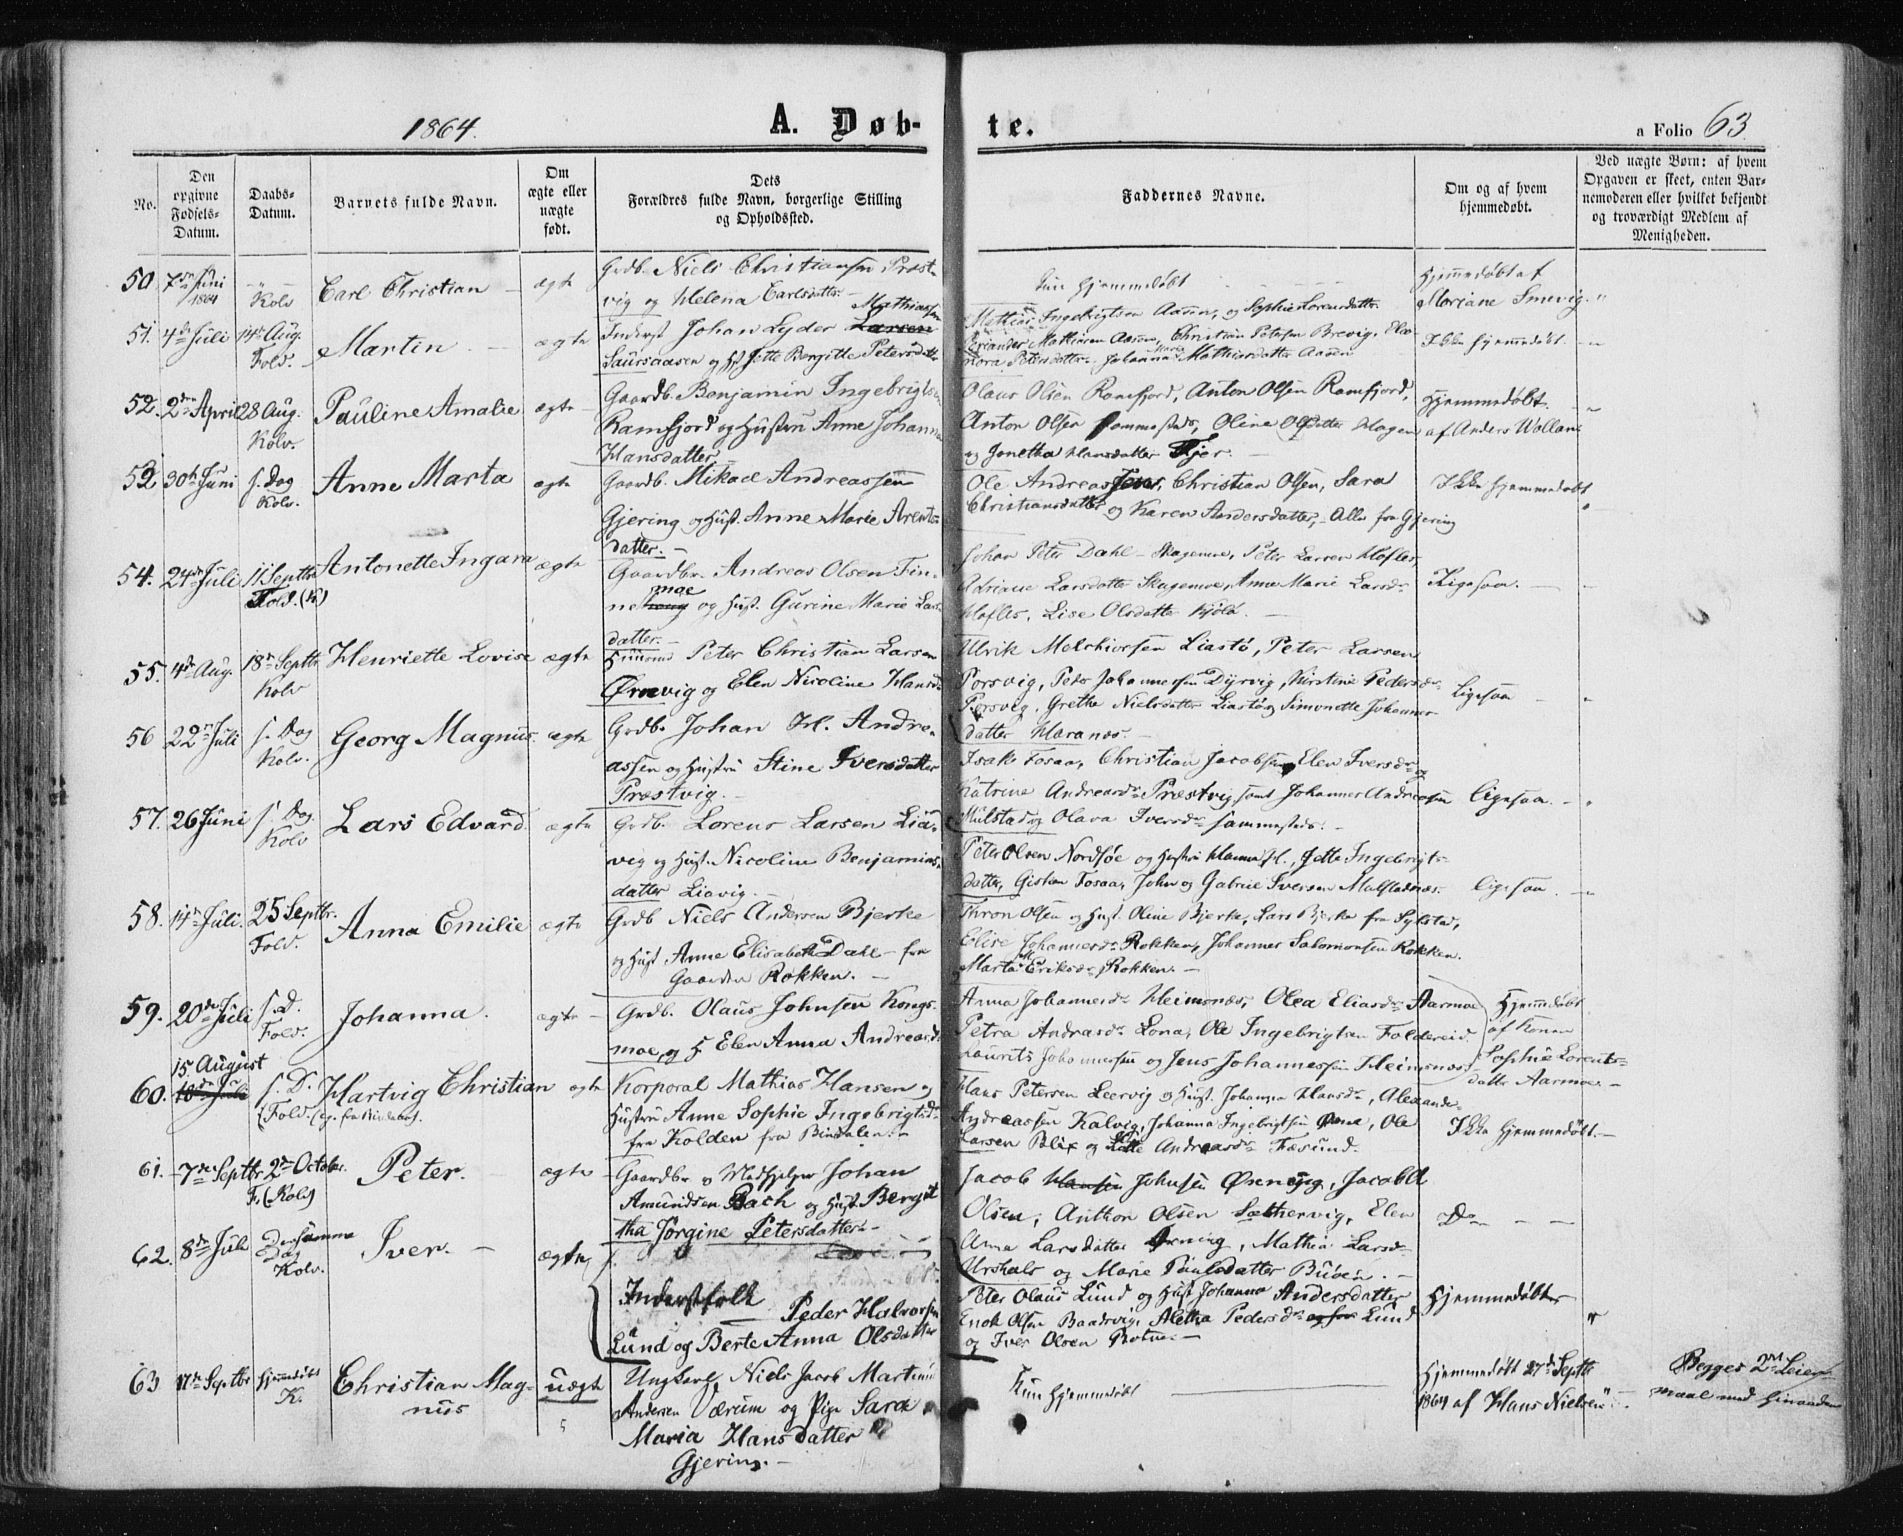 1864.
A. Døb-
te.
a Folio 63.
No.
Den opgivne Fødsels-Datum.
Daabs-Datum.
Barnets fulde Navn.
Om ægte eller uægte født.
Dets Forældres fulde Navn, borgerlige Stilling og Opholdssted.
Faddernes Navne.
Om og af hvem hjemmedøbt.
Ved uægte Børn: af hvem Opgaven er skeet, enten Barnemoderen eller hvilket bekjendt og troværdigt Medlem af Menigheden.
50. 7de Juni 1864 Kolv Carl Christian ægte Grdb. Niels Christiansen Præst-
vig og Helena Carlsdatter.
Kun hjemmedøbt
Hjemmedøbt af
Mariane Smevig.
51. 4de Juli 14de Aug. Fold. Martin ægte Inderst Johan Lyder Larsen Mathiassen
Saursaasen og H. Jette Bergitte Petersdatter
Mathias Ingebrigtsen Aasen, og Sophie Lorensdatter.
Mathiasen Aasen, Christian Petersen Brevig, Eleo-
nora Petersdatter. Johanna Maria Mathiasdatter Aasen
Ikke hjemmedøbt.
52. 2den April 28 Aug. Kolv. Pauline Amalie ægte Gaardb. Benjamin Ingebrigtsen
Ramfjord og Hustru Anne Johanna
Hansdatter
Olaus Olsen Ramfjord, Anton Olsen Ramfjord,
Anton Olsen sammesteds, Oline Olsdatter Hagen
og Jonetha Hansdatter Fjer.
Hjemmedøbt.
af Anders Wollan
53 30te Juni s. Dag Kolv. Anne Marta ægte Gaardb. Mikael Andreassen
Gjering og Hust. Anne Marie Arents-
datter.
Ole Andreassen, Christian Olsen, Sara
Christiansdatter og Karen Andersdatter, Alle fra Gjering
Ikke hjemmedøbt
54. 24de Juli 11 Septbr. Fold. (K) Antonette Ingara ægte Gaardbr. Andreas Olsen Fin-
nemoe og Hust. Gurine Marie Lars-
datter.
Johan Peter Dahl Skagemoe, Peter Larsen Høfles,
Adriane Larsdatter Skagemoe, Anne Marie Larsdr
Høfles, Lise Olsdatter Kjølø.
Ligesaa.
55. 4de Aug. 18de Septbr. Kolv Henriette Lovise ægte Huusmd Peter Christian Larsen
Ørnevig og Elen Nicoline Hansd
Ulrik Melchiorsen Liastø, Peter Larsen
Porsvig, Peder Johannessen Dyrvig, Kirstine Pedersdr
Porsvig, Grethe Nielsdatter Liastø og Simonette Johannes-
datter Haranes.
Ligesaa
56 22de Juli s. Dag Kolv. Georg Magnus. ægte Grdb. Johan H. Andre-
assen og Hustru Stine Iversdatter
Præstvig.
Isak Fosaa, Christian Jacobsen, Elen Iversdr og
Katrine Andreasdr Præstvig samt Johannes Andreassen
Mulstad og Olava Iversdr sammesteds.
Ligesaa.
57. 26 Juni s. Dag. Kolv Lars Edvard ægte Grdb. Lorens Larsen Lia-
vig og Hust. Nicoline Benjamins-
datter Liavig.
Peter Olsen Nordføe og Hustru Hanna H., Jette Ingebrigts-
datter, Gisken Fosaa, John og Gabriel Iversen Mulstadnes.
ligesaa.
58. 14de Juli. 25 Septbr. Fold. Anna Emilie ægte Grdb Niels Andersen Bjerke
og Hust Anne Elisabeth Dahl fra
Gaarden Rokken.
Thron Olsen og Hust. Oline Bjerke, Lars Bjerke fra Sylstad,
Elise Johannesdr Rokken, Johannes Salomonsen Rokken.
Marta Eriksdr Rokken.
59. 20de Juli s. D. Fold. Johanna. ægte Grdb. Olaus Johnsen Kongs-
moe, og H Elen Anna Andreasd
Anna Johannesdr Heimsnæs, Olea Eliasdr Aarmoe
Petra Andreasdr Lona, Ole Ingebrigtsen Foldereid.
Laurits Johannessen og Jens Johannessen Heimsnæs.
Hjemmedøbt
af Konen
Sophie Lorents-
datter Aarmoe.
60. 15 August s. D. Fold. Hartvig Christian ægte Korporal Mathias Hansen og
Hustru Anne Sophie Ingebrigtsdr
fra Kolden fra Bindalen.
Hans Petersen Leervig og Hust. Johanna Hansdr, Alexander
Andreassen Kalvig, Johanna Ingebrigtsen, Ole
Larsen og Andreasdr Fæsund.
Ikke hjemmedøbt.
61. 7de Septbr 2de October. F. (Kolv) Peter. ægte Gaardbr og Medhjelper Johan
Amundsen Bach og Hust. Bergit-
tha Jørgine Petersdatter
Jacob Hansen Johnsen Ørening, Jacob A
Olsen, Anthon Olsen Sæthervig, Elen
Anna Larsdatter Ørening, Mathia Larsdr
Urshals og Marie Paulsdatter Buøen.
Do
62. 8de Juli Den samme Dag Kolv. Iver. ægte
Inderstfolk Peder Halvorsen
Lund og Berte Anna Olsdatter
Peter Olaus Lund og Hust Johanna Andersdatter
Enok Olsen Baadsvig, Aletha Pedersdr Lund
og Iver Olsen Botnes.
Hjemmedøbt
63 17de Septbr hjemmedøbt K. Christian Mag-
nus uægte Ungkarl Niels Jacob Martinus
Andersen Værum og Pige Sara
Maria Hansdatter
Gjering.
Kun hjemmedøbt
Hjemmedøbt 27de Septbr
1864 af Hans Nielsen
Begges 2det Leier-
maal med hinanden